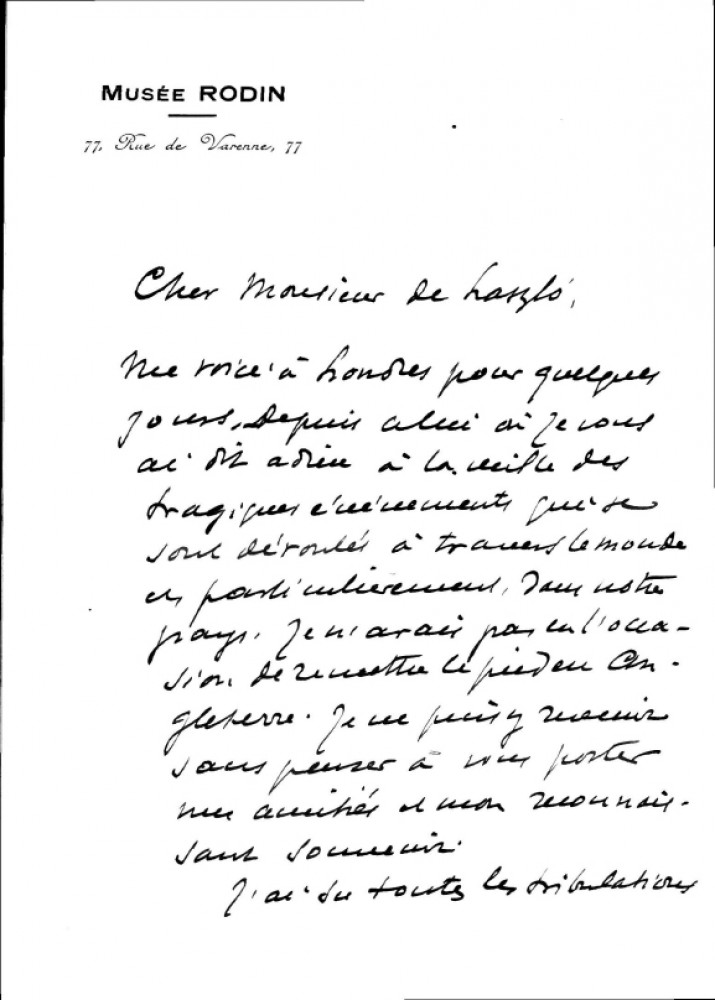 MUSÉE RODIN
77, Rue de Varenne, 77
Cher Monsieur de Laszló,
Me voici à Londres pour quelques
jours. Depuis celui où je vous
ai dit adieu à la veille des
tragiques événements qui se
sont déroulés à travers le monde
et particulièrement, dans notre
pays. Je n'avais pas eu l'occa-
sion de remettre le pied en An-
gleterre. Je ne puis y revenir
sans penser à vous porter
mes amitiés et mon reconnais-
sant souvenir.
J'ai su toutes les tribulations